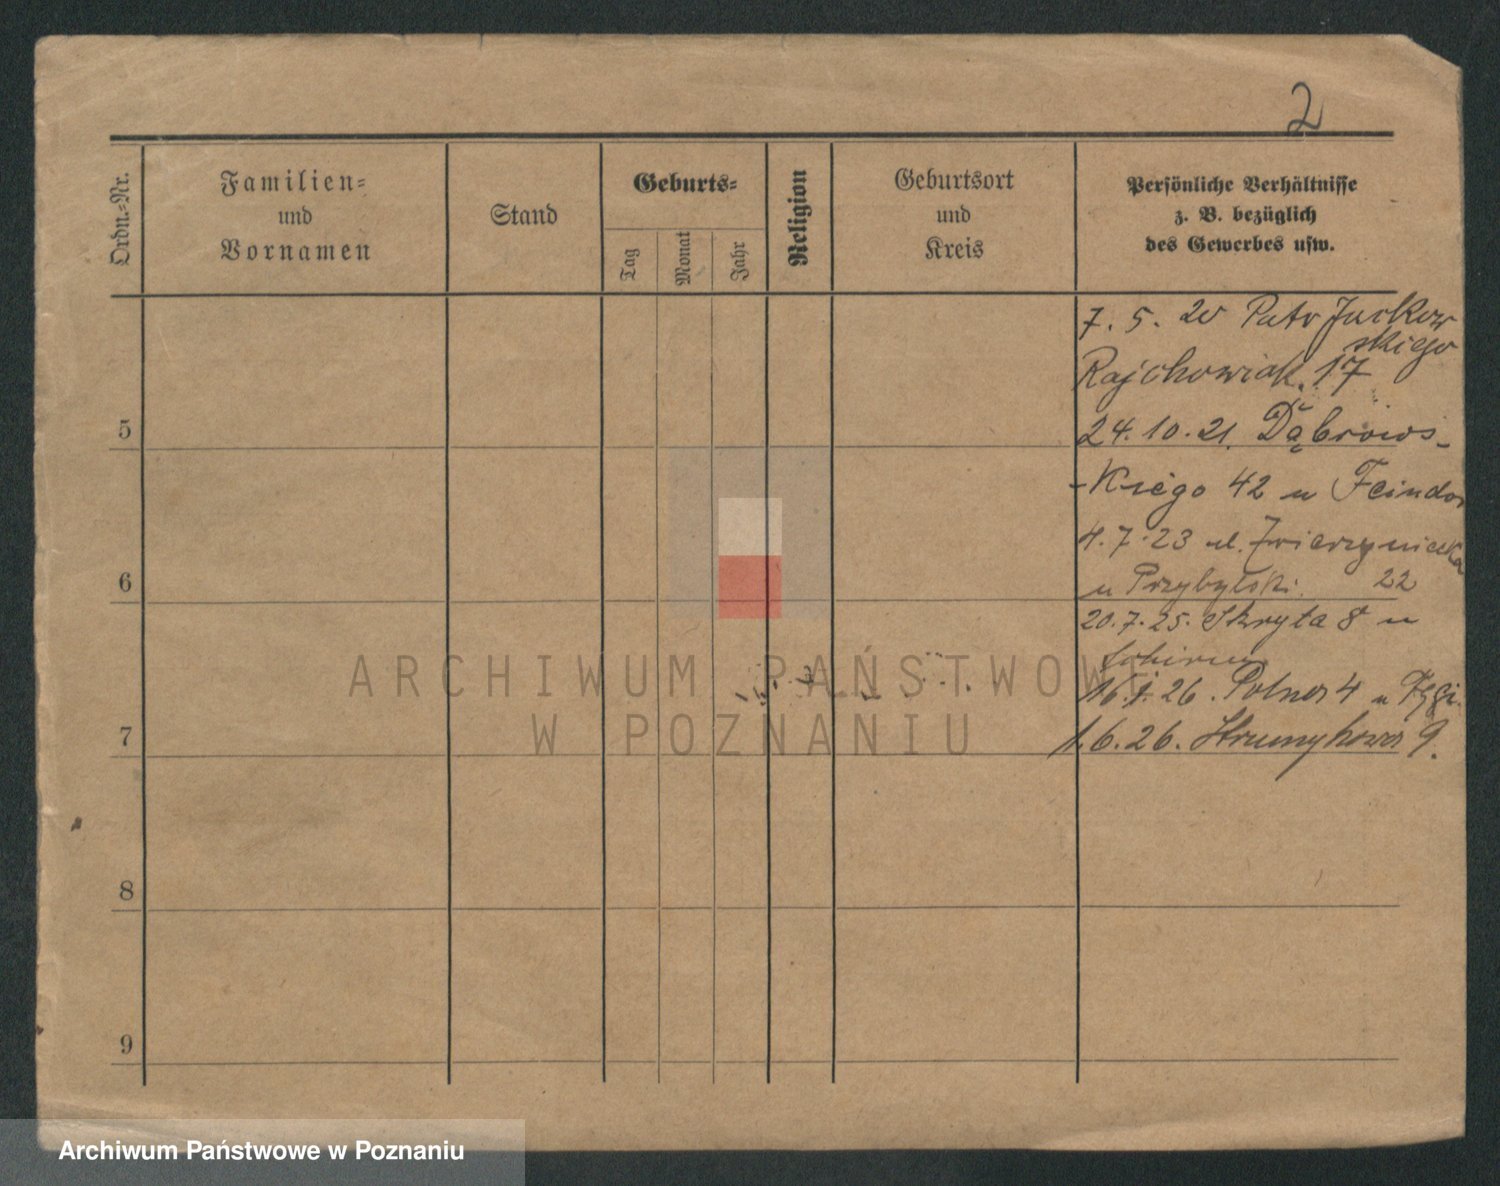 2
Ordn.-Nr.
Familien-
und
Vornamen
Stand
Geburts-
Tag
Monat
Jahr
Religion
Geburtsort
und
Kreis
Persönliche Verhältnisse
z. B. bezüglich
des Gewerbes usw.
7. 5. 20 Patr Jackow
skiego
Rajchowiak. 17
5
24. 10. 21. Dąbrows-
-kiego 42 u
4. 7. 23 ul. Zwierzyniecka
6
u Przybylski. 22
20. 7. 25. Skryta 8 u
16. 1. 26. Polna 4 u
7
1. 6. 26. Strumykowa 9.
8
9
ARCHIWUM PAŃSTWOWE
W POZNANIU
Archiwum Państwowe w Poznaniu